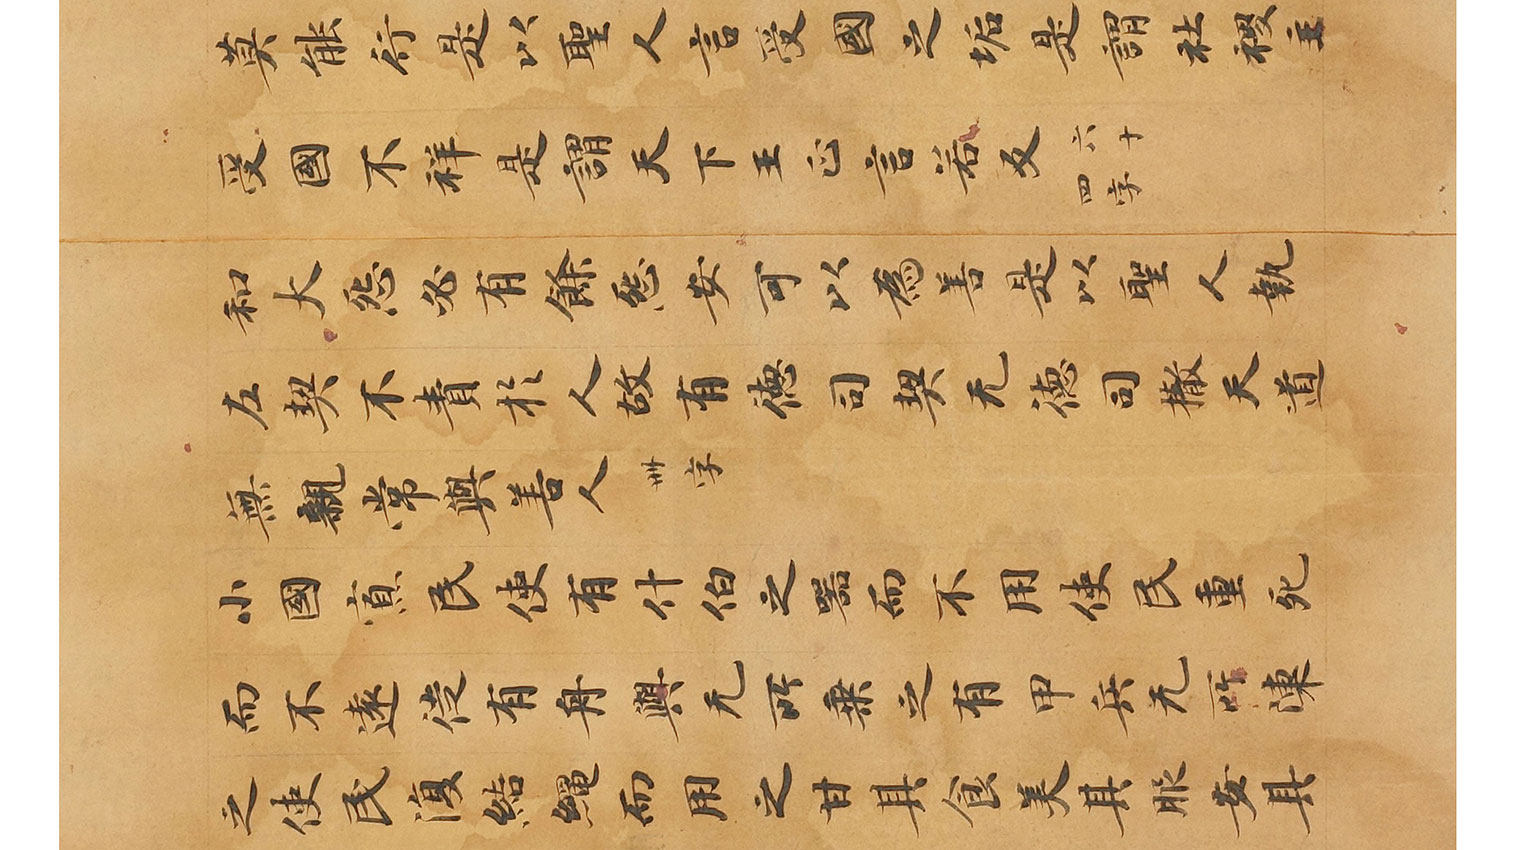 莫能行是以聖人言受國之垢是謂社稷主
受國不祥是謂天下王正言若反 六十四字
和大怨必有餘怨安可以為善是以聖人執
左契不責於人故有德司契无德司撤天道
無親常與善人 卌字
小國寡民使有什伯之器而不用使民重死
而不遠徙有舟輿无所乘之有甲兵无所陳
之使民復結繩而用之甘其食美其服安其